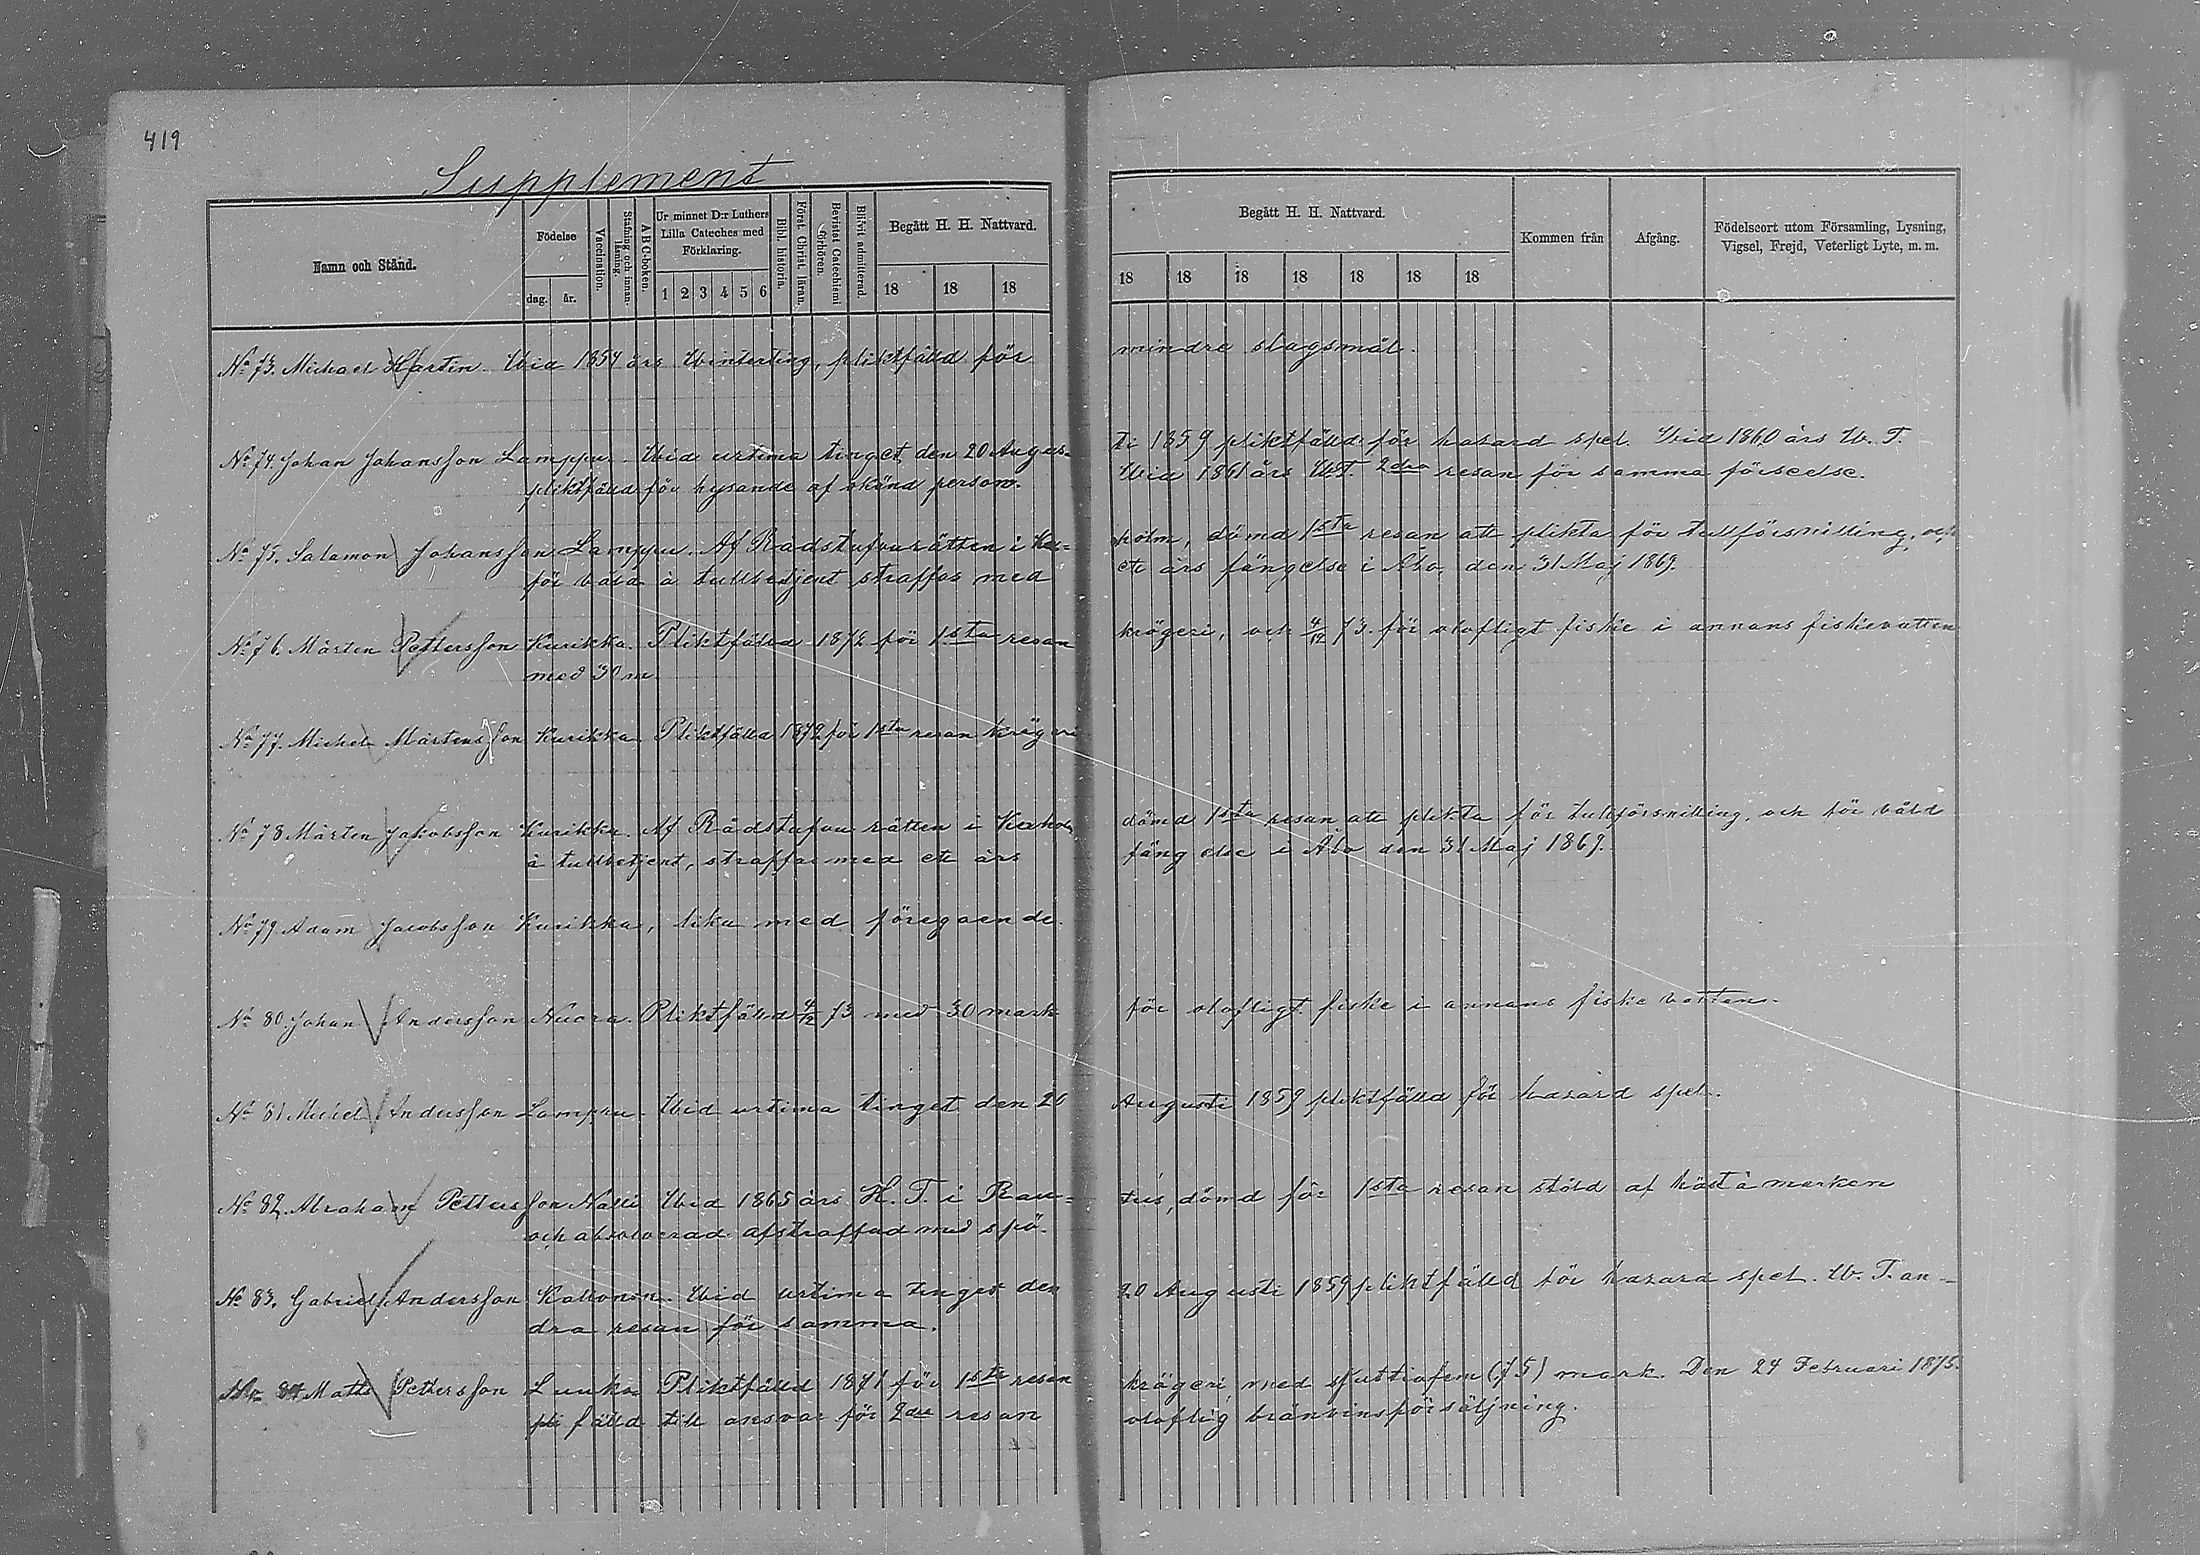 419
Supplement
Namn och Stånd.
Födelse
dag.
år.
Vaccination.
Stafning och innanläsning.
A B C-boken.
Ur minnet D:r Luthers Lilla Cateches med Förklaring.
1 2 3 4 5 6
Bibl. historia.
Först. Christ. läran.
Bevistat Catechismi förhören.
Blifvit admitterad.
Begått H. H. Nattvard.
18 18 18
Begått H. H. Nattvard.
18 18 18 18 18 18 18
Kommen från
Afgång.
Födelseort utom Församling, Lysning, Vigsel, Frejd, Veterligt Lyte, m. m.
No 73. Michael Martin. Wid 1854 års Winterting, pliktfälld för mindre slagsmål.
No 74. Johan Johansson Lamppu. Wid urtima tinget den 20 Augusti 1859 pliktfälld för hasard spel. Wid 1860 års W. T.
pliktfälld för hysande af okänd person. Wid 1861 års W.T. 2dra resan för samma förseelse.
No 75. Salamon Johansson Lamppu. Af Rådstufvurätten i Kex=holm, dömd 1sta resan att plikta för tullförsnilling, och
för våld å tullbetjent straffas med ett års fängelse i Åbo, den 31 Maj 1869.
No 76. Mårten Pettersson Kurikka. Pliktfälld 1872 för 1sta resan krögeri, och 4/12 73. för olofligt fiske i annans fiskevatten
med 30 m
No 77. Michel Mårtensson Kurikka Pliktfälld 1872 för 1sta resan krögeri
No 78 Mårten Jakobsson Kurikka. Af Rådstufvu rätten i Kexholm dömd 1sta resan att plikta för tullförsnilling, och för våld
å tullbetjent, straffas med ett års fängelse i Åbo den 31 Maj 1869.
No 79 Adam Jacobsson Kurikka, lika med föregående.
No 80. Johan Andersson Nuora. Pliktfälld 4/12 73 med 30 mark för olofligt fiske i annans fiske vatten.
No 81 Michel Andersson Lamppu. Wid urtima tinget den 20 Augusti 1859 pliktfälld för hasard spel.
No 82. Abraham Pettersson Nalli Wid 1865 års H. T. i Rau=tus, dömd för 1sta resan stöld af häst å marken
och absolverad afstraffad med spö.
No 83. Gabriel Andersson Kokonen. Wid urtima tinget den 20 Augusti 1859 pliktfälld för hazard spel. W. T. an-
dra resan för samma.
No 84 Matts Pettersson Luukka Pliktfälld 1871 för 1sta resan krögeri med sjuttiofem (75) mark. Den 24 Februari 1875.
fälld till ansvar för 2dra resan oloflig bränvinsförsäljning.